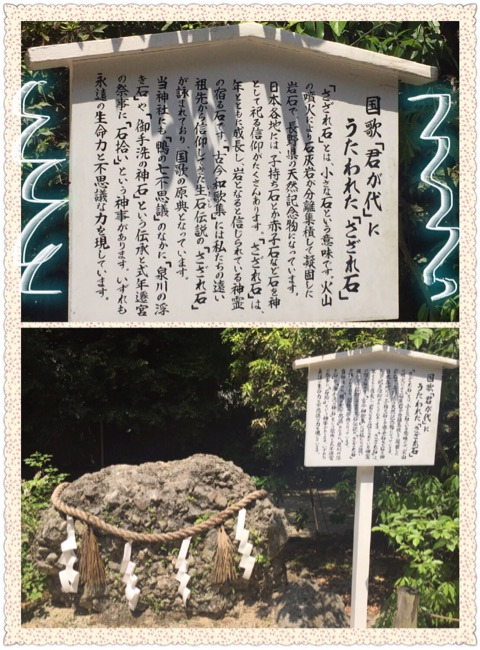 国歌「君が代」に
うたわれた「さざれ石」
「さざれ石」とは、小さな石という意味です。火山
の噴火により石灰岩が分離集積して凝固した
岩石で、長野県の天然記念物になっています。
日本各地には、子持ち石とか赤子石など石を神
として祀る信仰がたくさんあります。「さざれ石」は、
年とともに成長し、岩となると信じられている神霊
の宿る石です。「古今和歌集」には私たちの遠い
祖先から信仰してきた生石伝説の「さざれ石」
が詠まれており、国歌の原典となっています。
当神社にも「鴨の七不思議」のなかに、「泉川の浮
き石」や、「御手洗の神石」という伝承と式年遷宮
の祭事に「石拾」という神事があります。いずれも
永遠の生命力と不思議な力を現しています。
国歌「君が代」に
うたわれた「さざれ石」